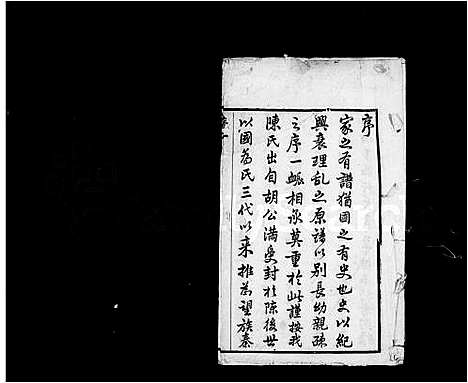 序
家之有譜猶國之有史也史以紀
興衰理乱之原譜以別長幼親疎
之序一脈相承莫重於此謹按我
陳氏出自胡公滿受封於陳後世
以國為氏三代以來推為望族秦